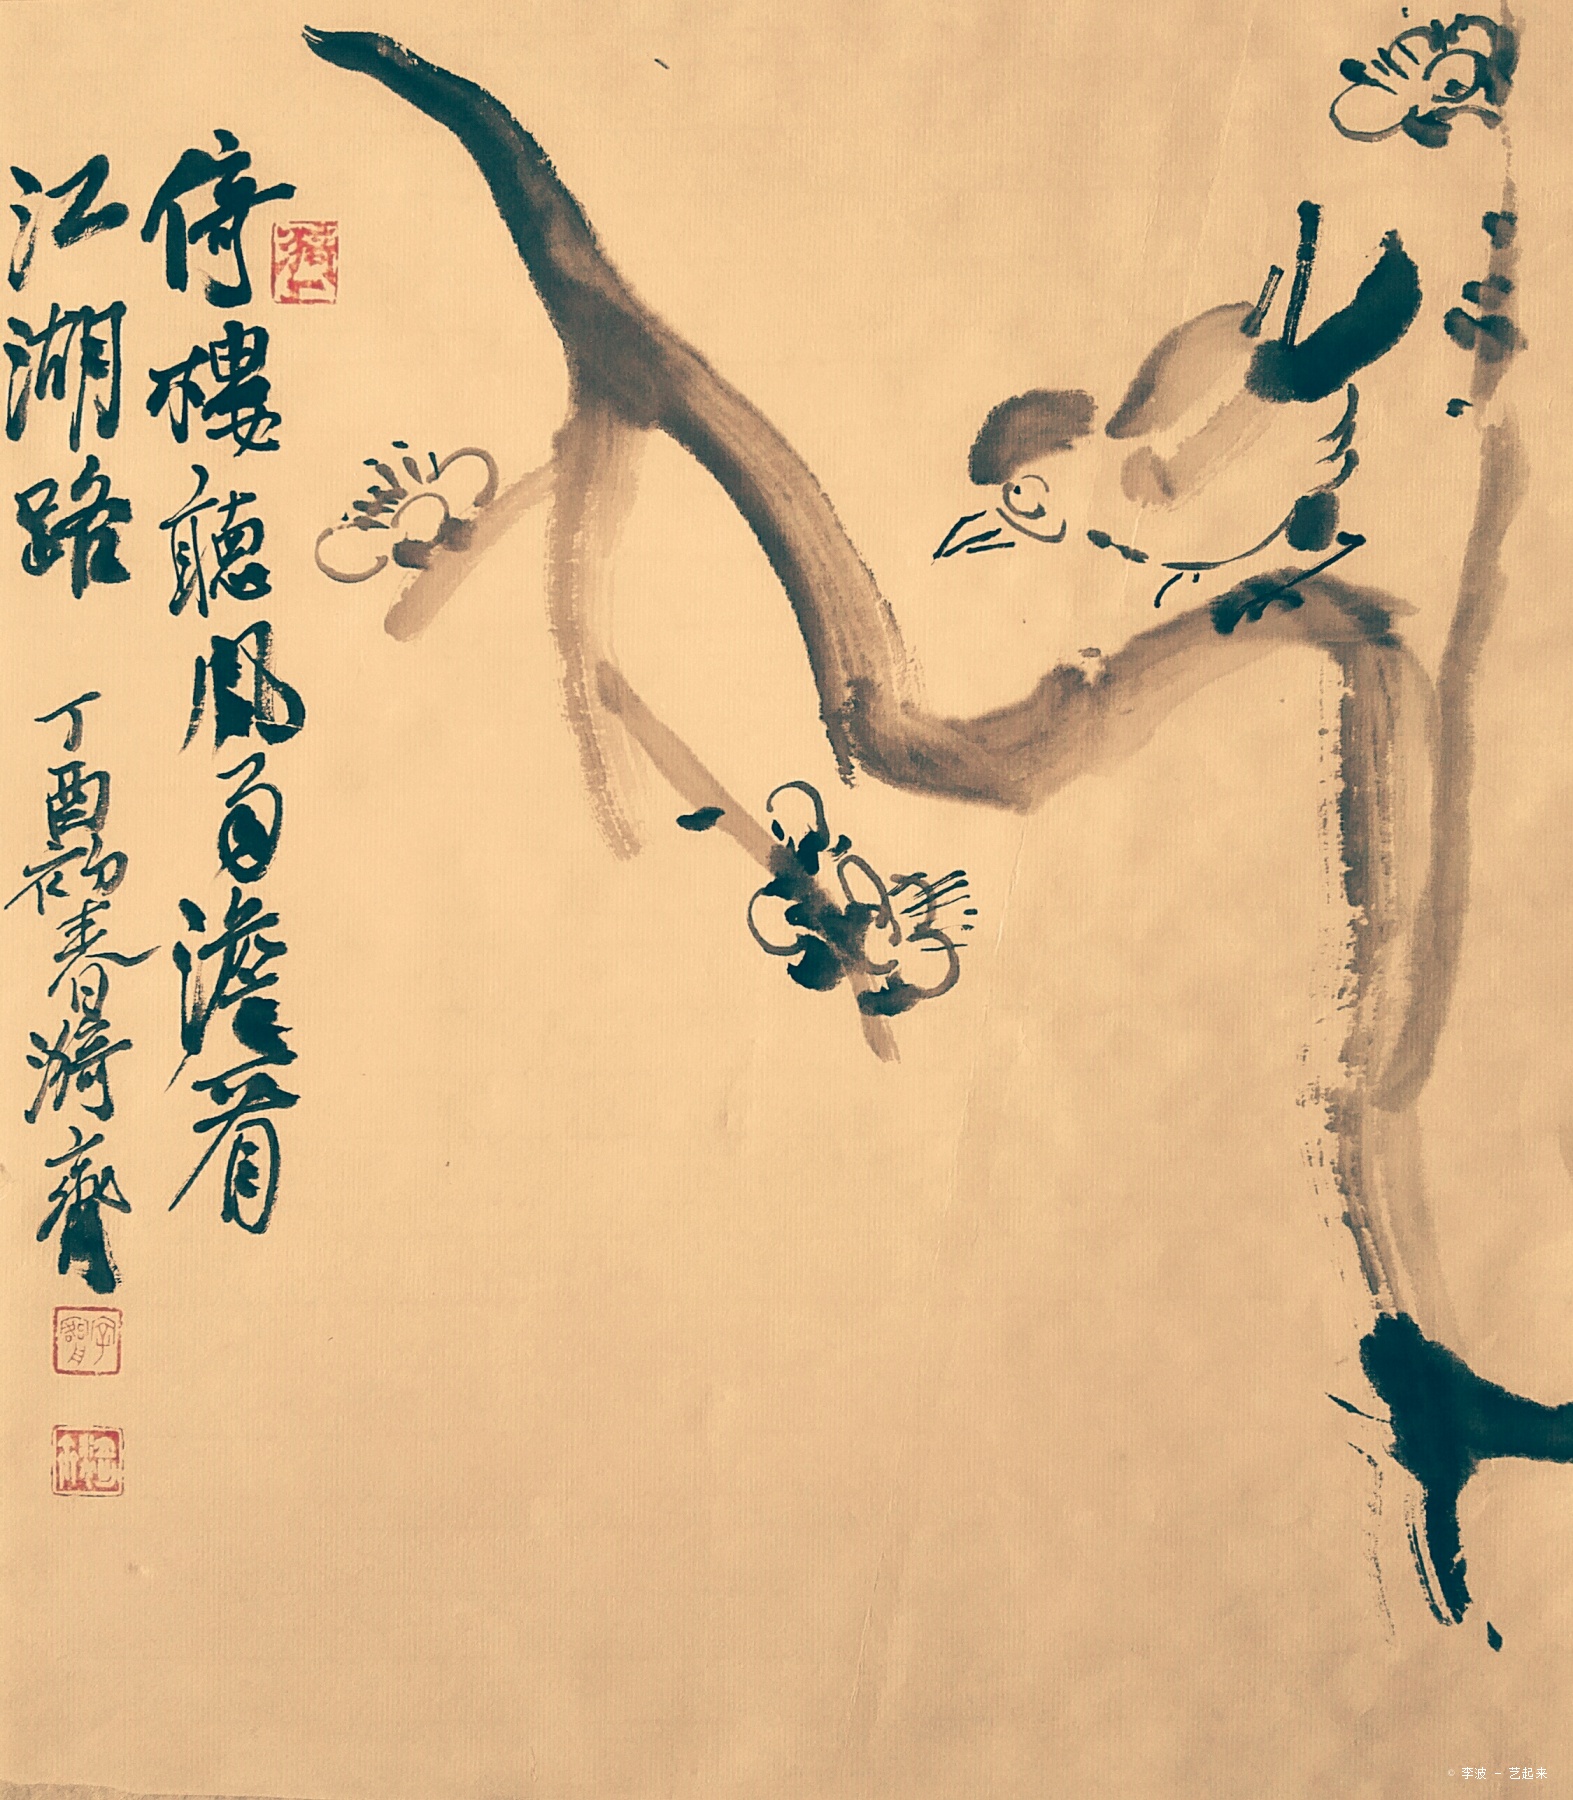 倚樓聽風雨澹看
江湖路 丁酉初春漪齋
© 李波 - 艺起来